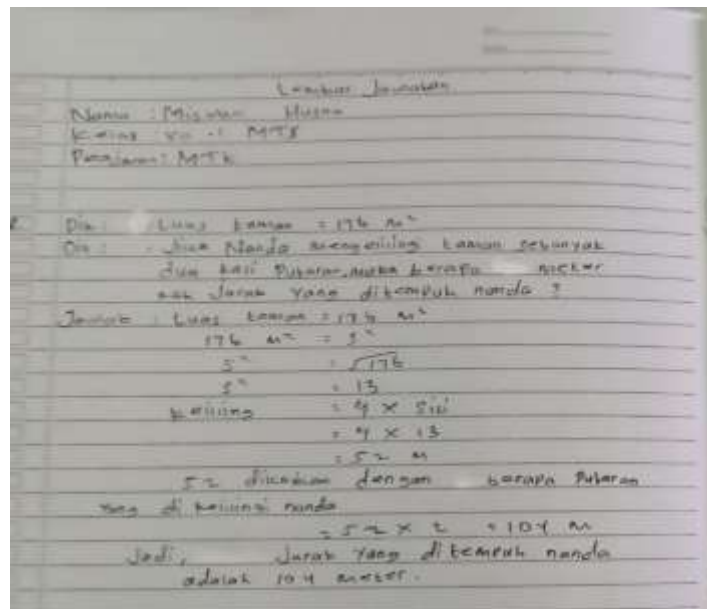 Lembar Jawaban
Nama : Misnan Husna
Kelas VII - : MTS
Pelajaran : MTK
Dik : Luas taman = 176 m²
Dit : Jika Nanda mengelilingi taman sebanyak
dua kali Putaran, maka berapa meter
Jarak Yang ditempuh nanda ?
Jawab : Luas taman = 176 m²
176 m² = s²
s² = √176
s² = 13
keliling = 4 x Sisi
= 4 x 13
= 52 m
52 dikalikan dengan berapa Putaran
di kelilingi nanda
= 52 x 2 = 104 m
Jadi, Jarak Yang ditempuh nanda
adalah 104 meter.